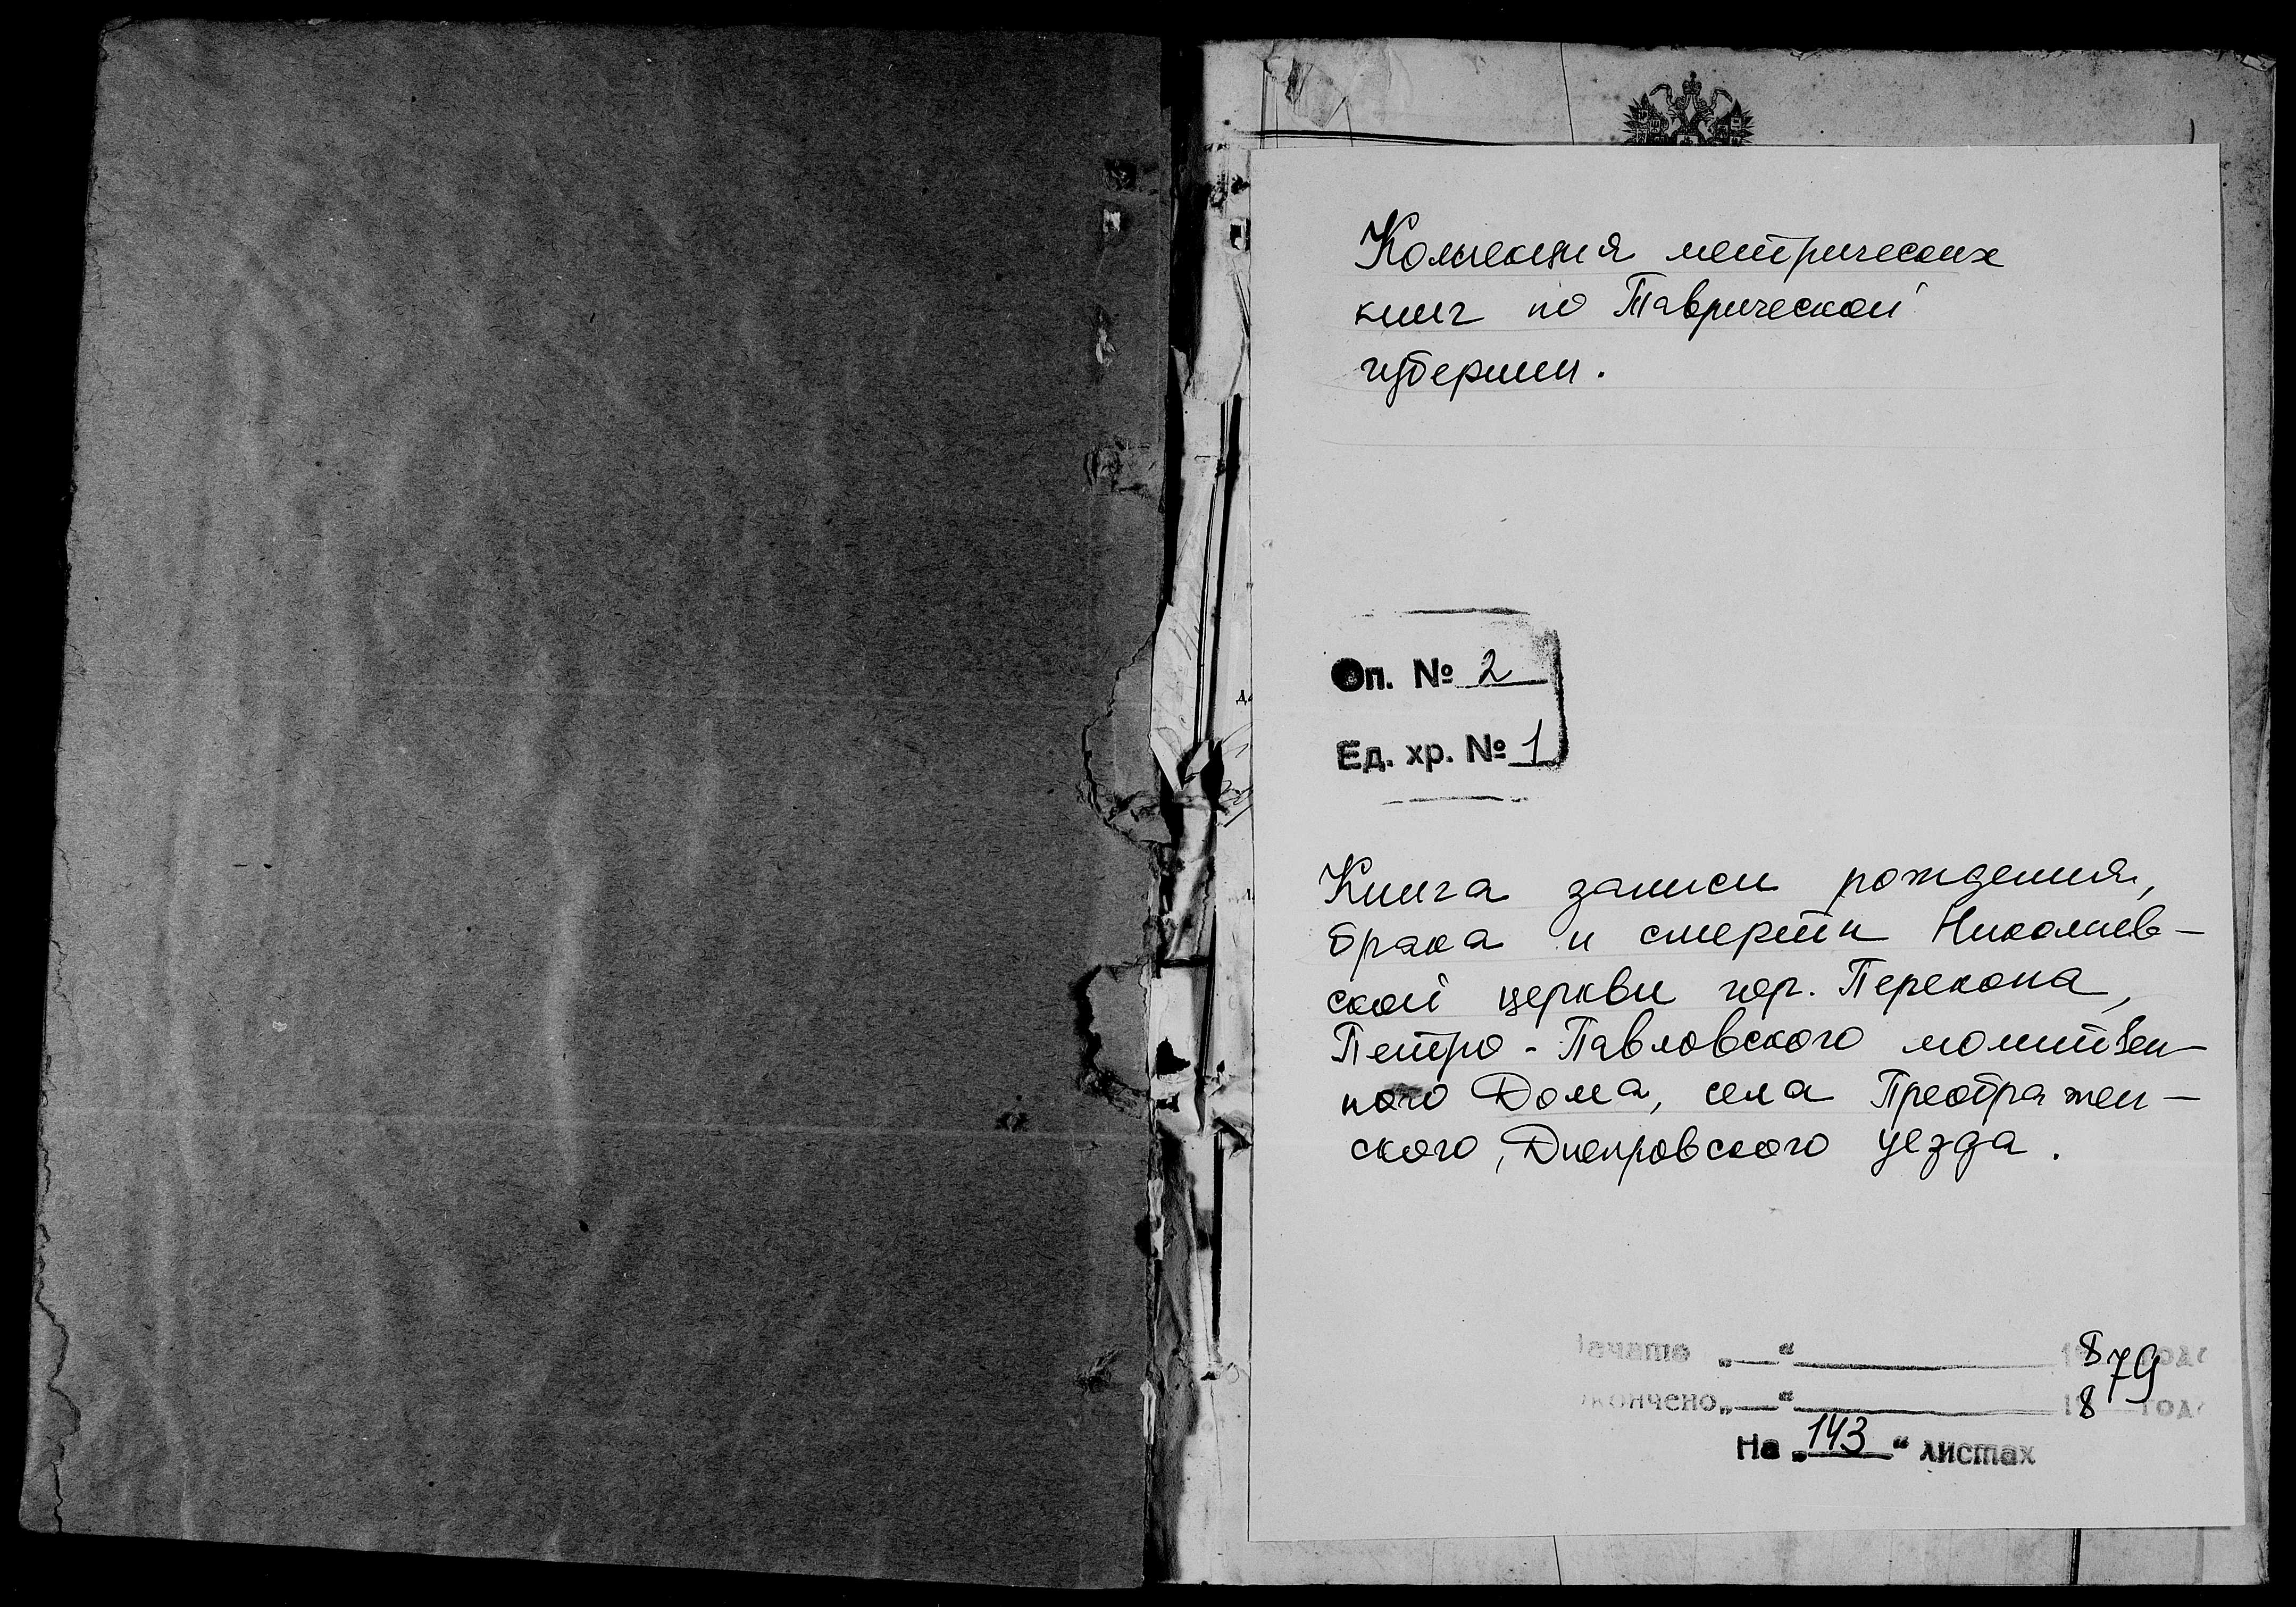 Коллекция метрических
книг по Таврической
губернии.
Оп. № 2
Ед. хр. № 1
Книга записи рождения,
брака и смерти Николаев-
ской церкви гор. Перекопа,
Петро-Павловского молитвен-
ного Дома, села Преображен-
ского, Днепровского уезда.
Начато „—“ 1879 года
Окончено „—“ 18 года
На „143“ листах